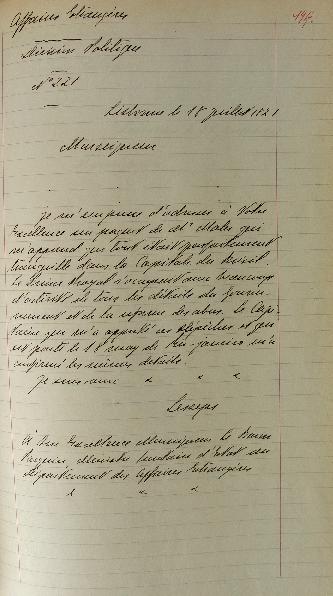 Affaires Etrangères
Division Politique
Nº 221
Lisbonne le 18 juillet 1821
Monseigneur
Je m'empresse d'adresser à Votre
Excellence un paquet de Mr Maler qui
m'apprend que tout était parfaitement
tranquille dans la Capitale du Brésil.
Le Prince Royal s'occupait avec beaucoup
d'activité de tous les détails du Gouver-
nement et de la réforme des abus. Le Capi-
taine qui m'a apporté ces dépêches et qui
est parti le 18 may de Rio-Janeiro m'a
confirmé les mêmes détails.
Je suis avec " " "
Lesseps
À Son Excellence Monseigneur le Baron
Pasquier, Ministre Secrétaire d'Etat au
Département des Affaires Etrangères
" " "